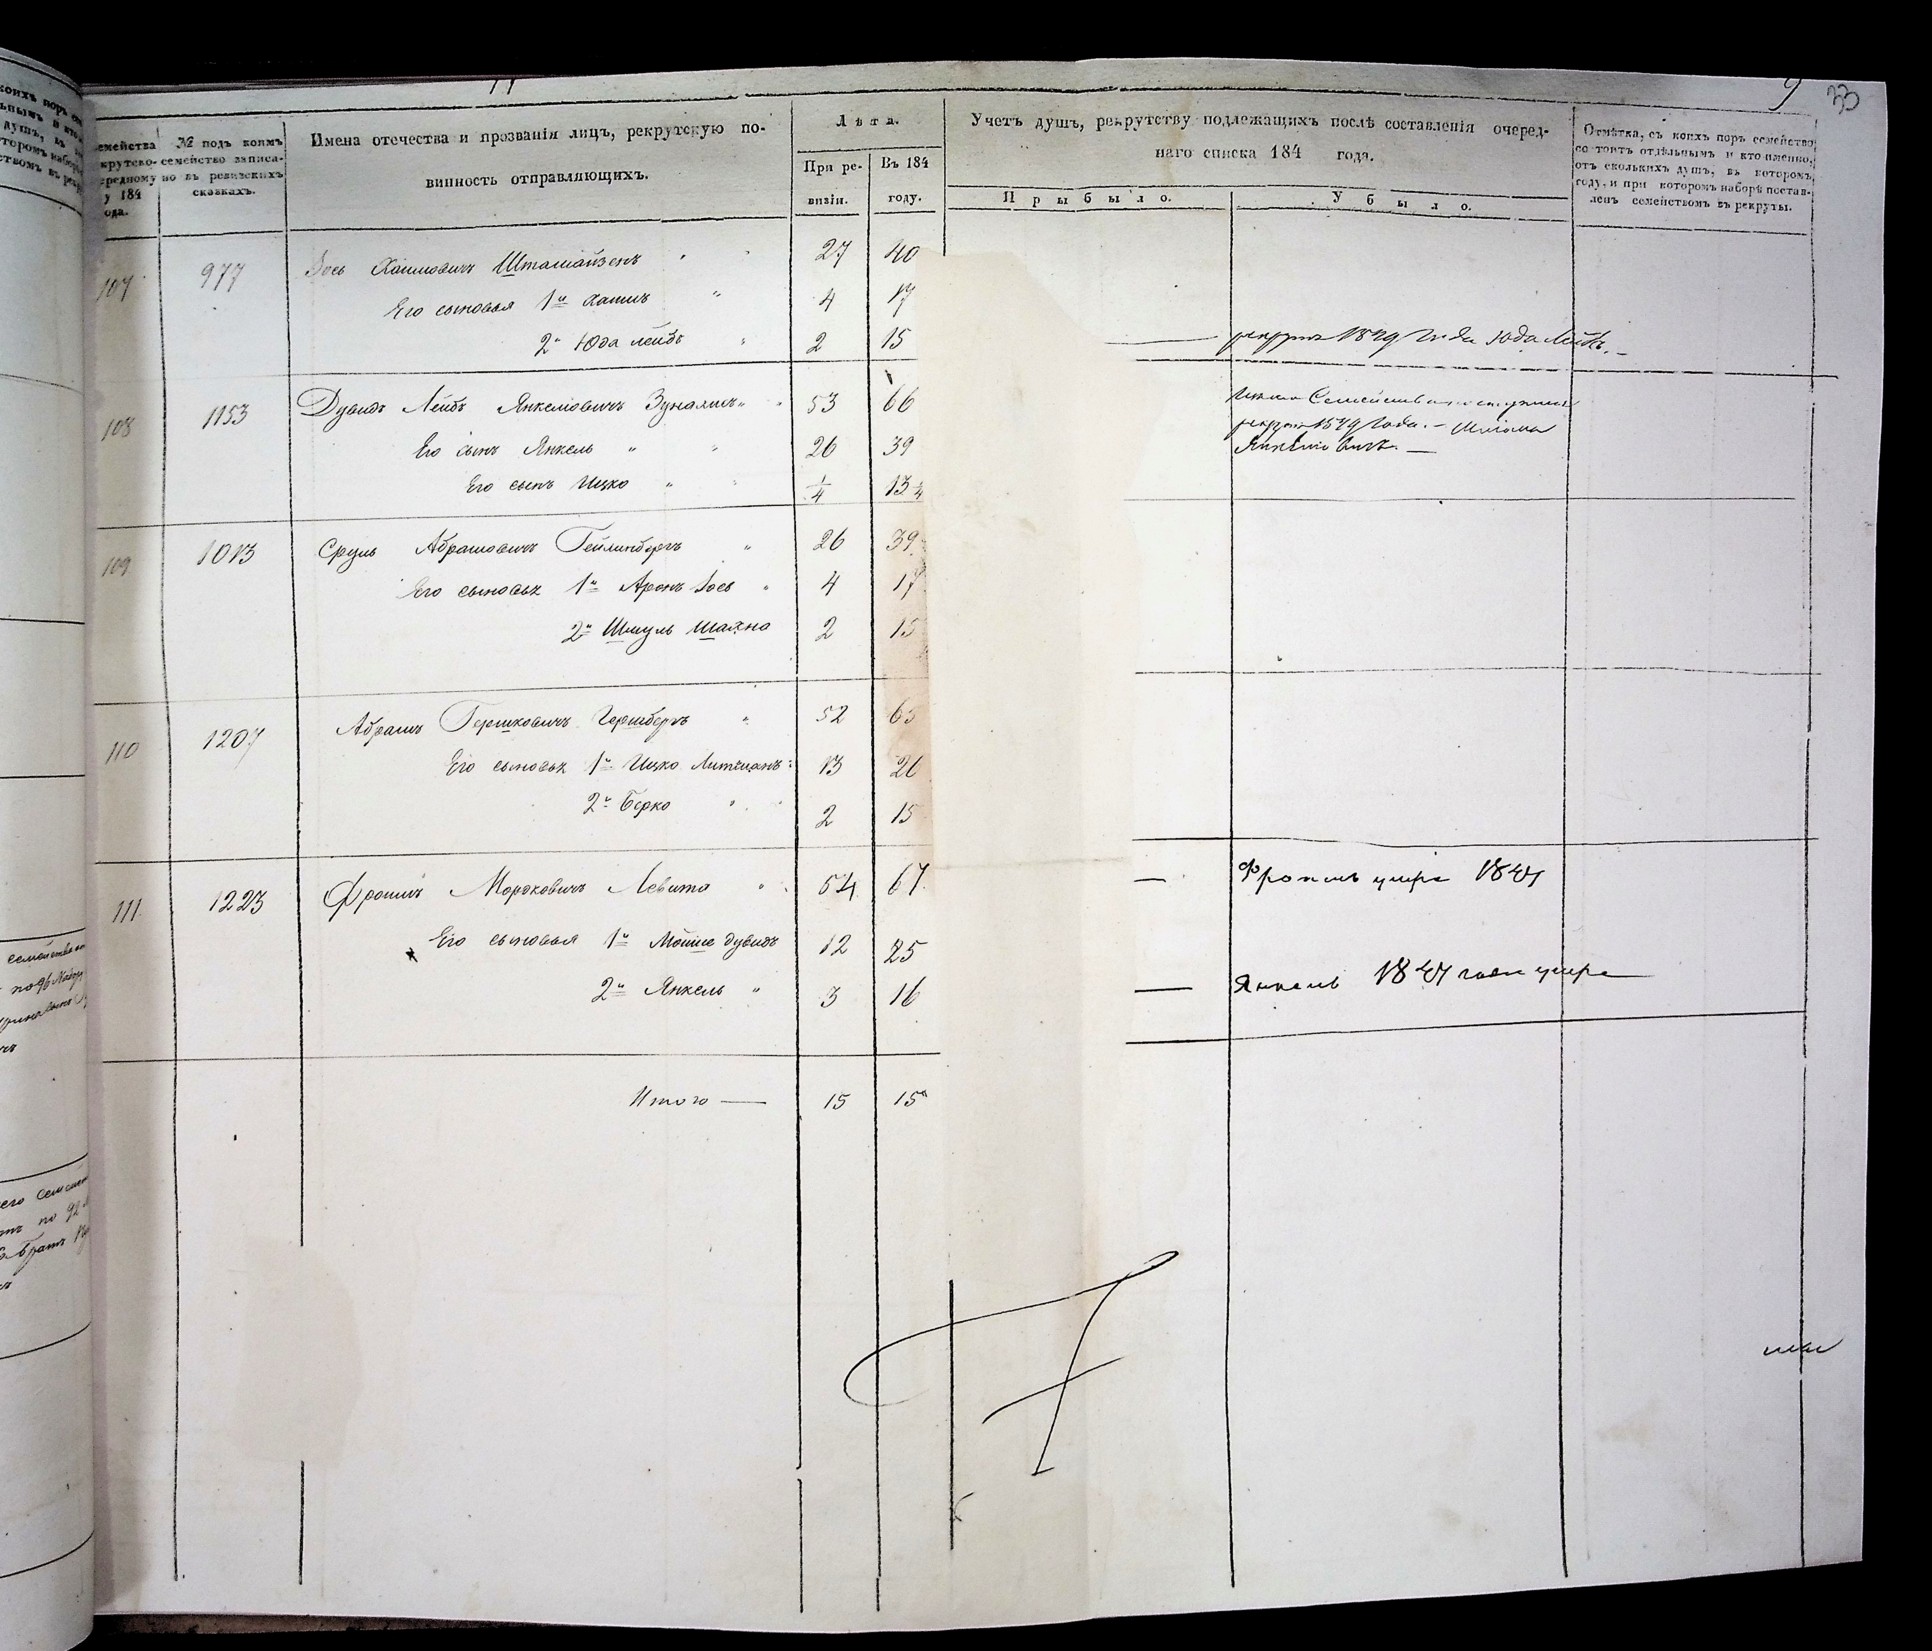 9 33
семейства
№ подъ коимъ
семейство записа-
но въ ревизскихъ
сказкахъ.
у 184
ода.
Имена отечества и прозванія лицъ, рекрутскую по-
винность отправляющихъ.
Лѣта.
При ре-
визіи.
Въ 184
году.
Учетъ душъ, рекрутству подлежащихъ послѣ составленія очеред-
наго списка 184 года.
Прыбыло.
Убыло.
Отмѣтка, съ коихъ поръ семейство
состоитъ отдѣльнымъ и кто именно,
отъ сколькихъ душъ, въ которомъ
году, и при которомъ наборѣ постав-
ленъ семействомъ въ рекруты.
107 977 Іось Хаимовичъ Штамайзенъ 27 40
Его сыновья 1й Хаимъ 4 17
2й Юда Лейбъ 2 15 рекрутъ 1849 года Юда Лейбъ.
108 1153 Дувидъ Лейбъ Янкеліовичъ 53 66
Его сынъ Янкель 26 39
Его сынъ Ицко 1/4 13 1/4
рекрутъ 1849 года.
109 1013 Сруль Абрамовичъ Гейлинбергъ 26 39
Его сыновья 1й Аронъ Іось 4 17
2й Шмуль Шахно 2 15
110 1207 Абрамъ Гершковичъ Гершбергъ 52 65
Его сыновья 1й Ицко 13 26
2й Берко 2 15
111 1223 Фроимъ Морковичъ Левита 54 67 Фроимъ умре 1847
Его сыновья 1й Мойше Дувидъ 12 25
2й Янкель 3 16 Янкель 1847 года умре
Итого 15 15